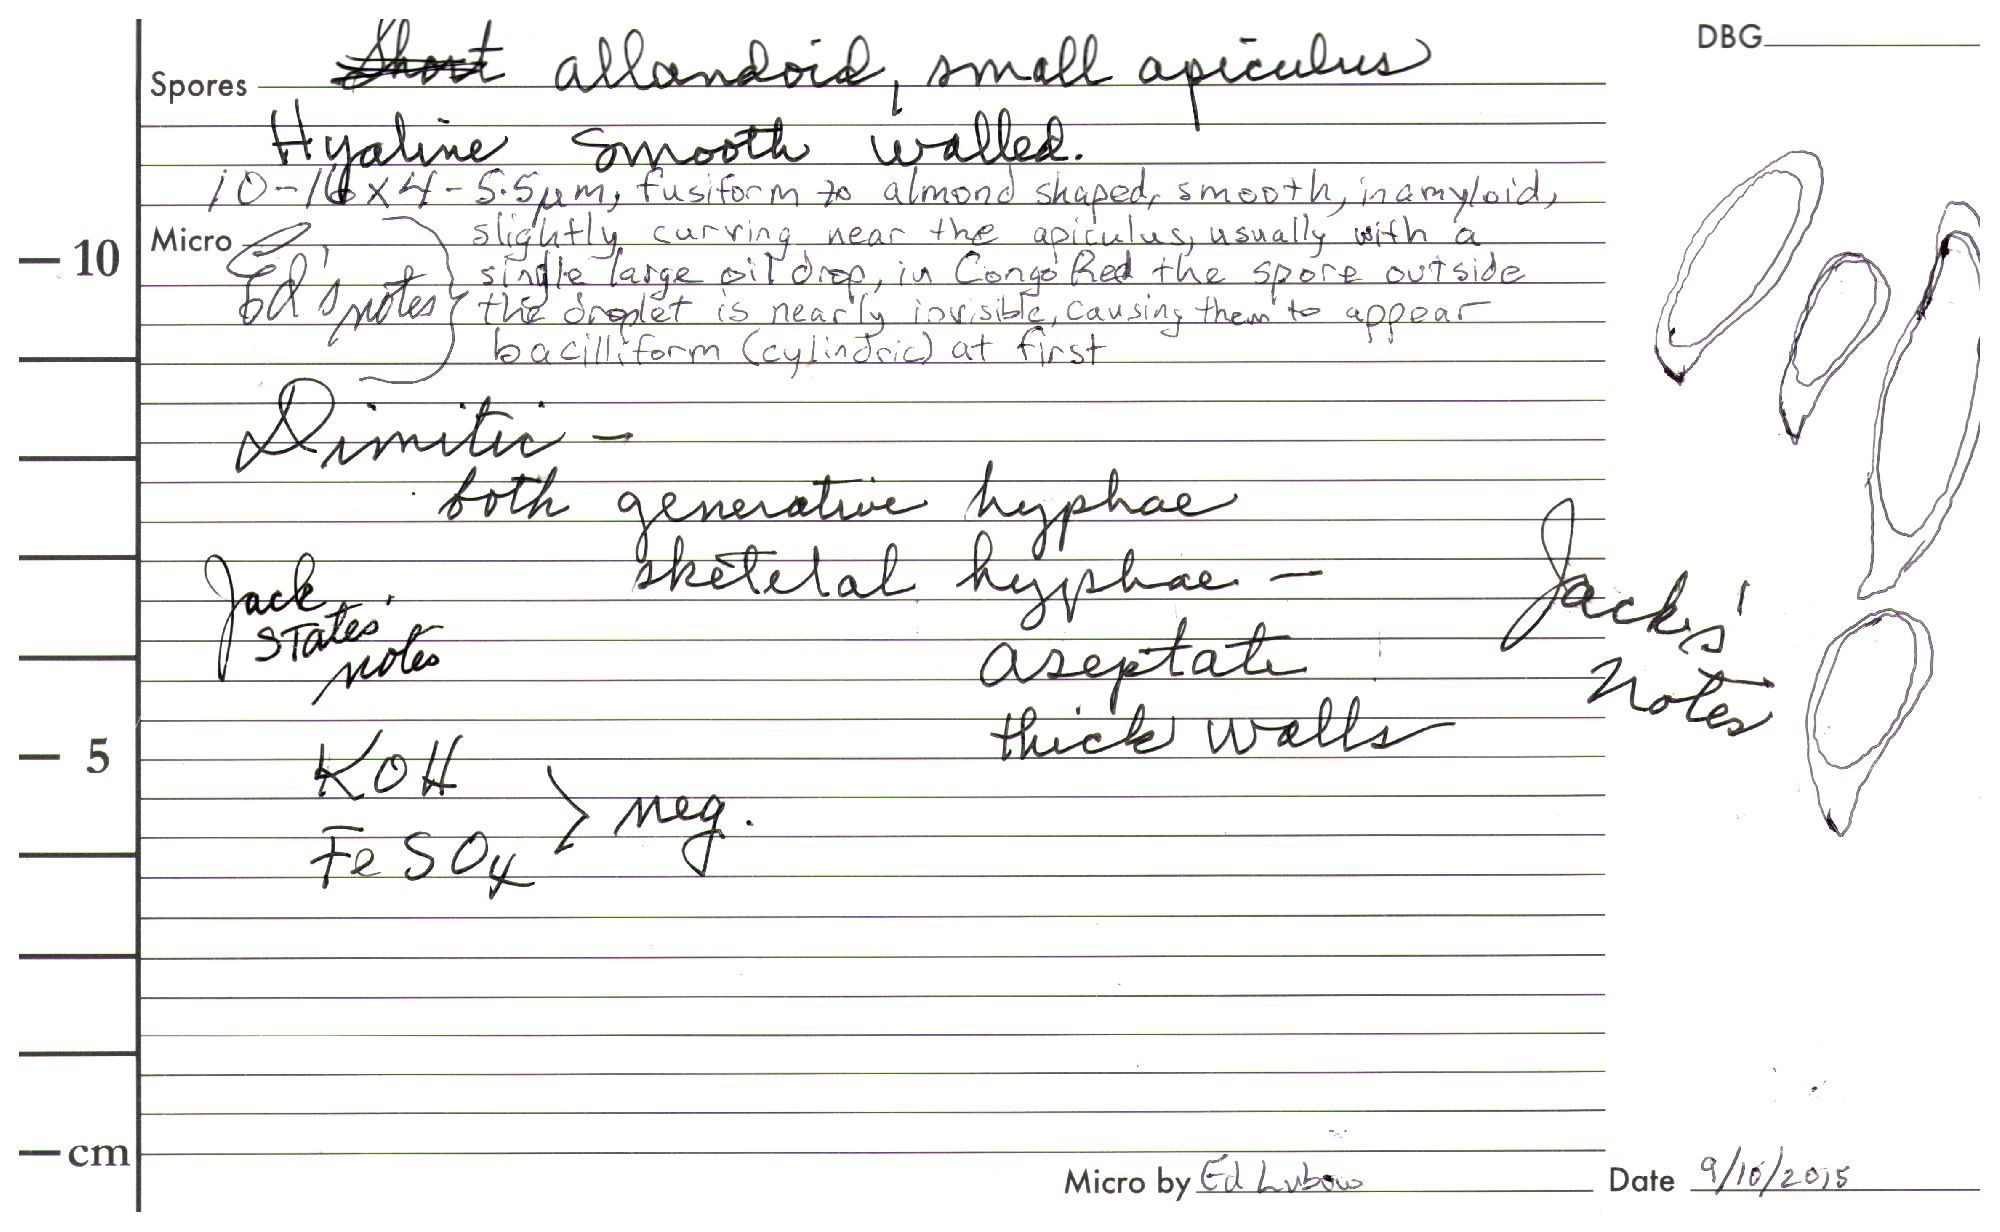 DBG
Spores Short allandoid, small apiculus
Hyaline smooth walled.
10-16 x 4-5.5µm, fusiform to almond shaped, smooth, inamyloid,
Micro slightly curving near the apiculus, usually with a
10 Ed's notes single large oil drop, in Congo Red the spore outside
the droplet is nearly invisible, causing them to appear
bacilliform (cylindric) at first
Dimitic -
both generative hyphae
skeletal hyphae -
Jack States' notes
aseptate
thick walls
Jack's' Notes
5
KOH
FeSO4 > neg.
cm
Micro by Ed Lubow Date 9/10/2015